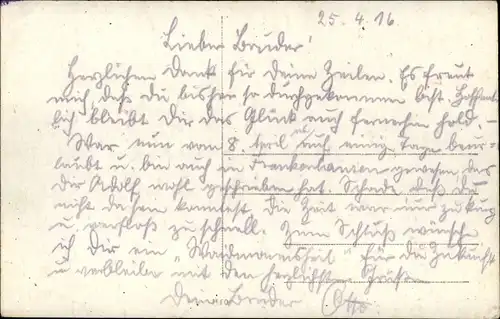 25.4.16.
Lieber Bruder!
Herzlichen Dank für deine Zeilen. Es freut
mich daß Du bisher so durchgekommen bist. Hoffent-
lich bleibt Dir das Glück auch fernerhin hold. -
War nun vom 8. April ab auch einige Tage beur-
laubt u. bin auch in gewesen, was
Dir Adolf wohl geschrieben hat. Schade, daß Du
nicht da sein konntest. Die Zeit war nur zu kurz
u. verfloß zu schnell. Zum Schluß wünsche
ich Dir ein „Waidmannsheil" für die Zukunft
u. verbleibe mit den herzlichsten Grüßen
Dein Bruder Otto.